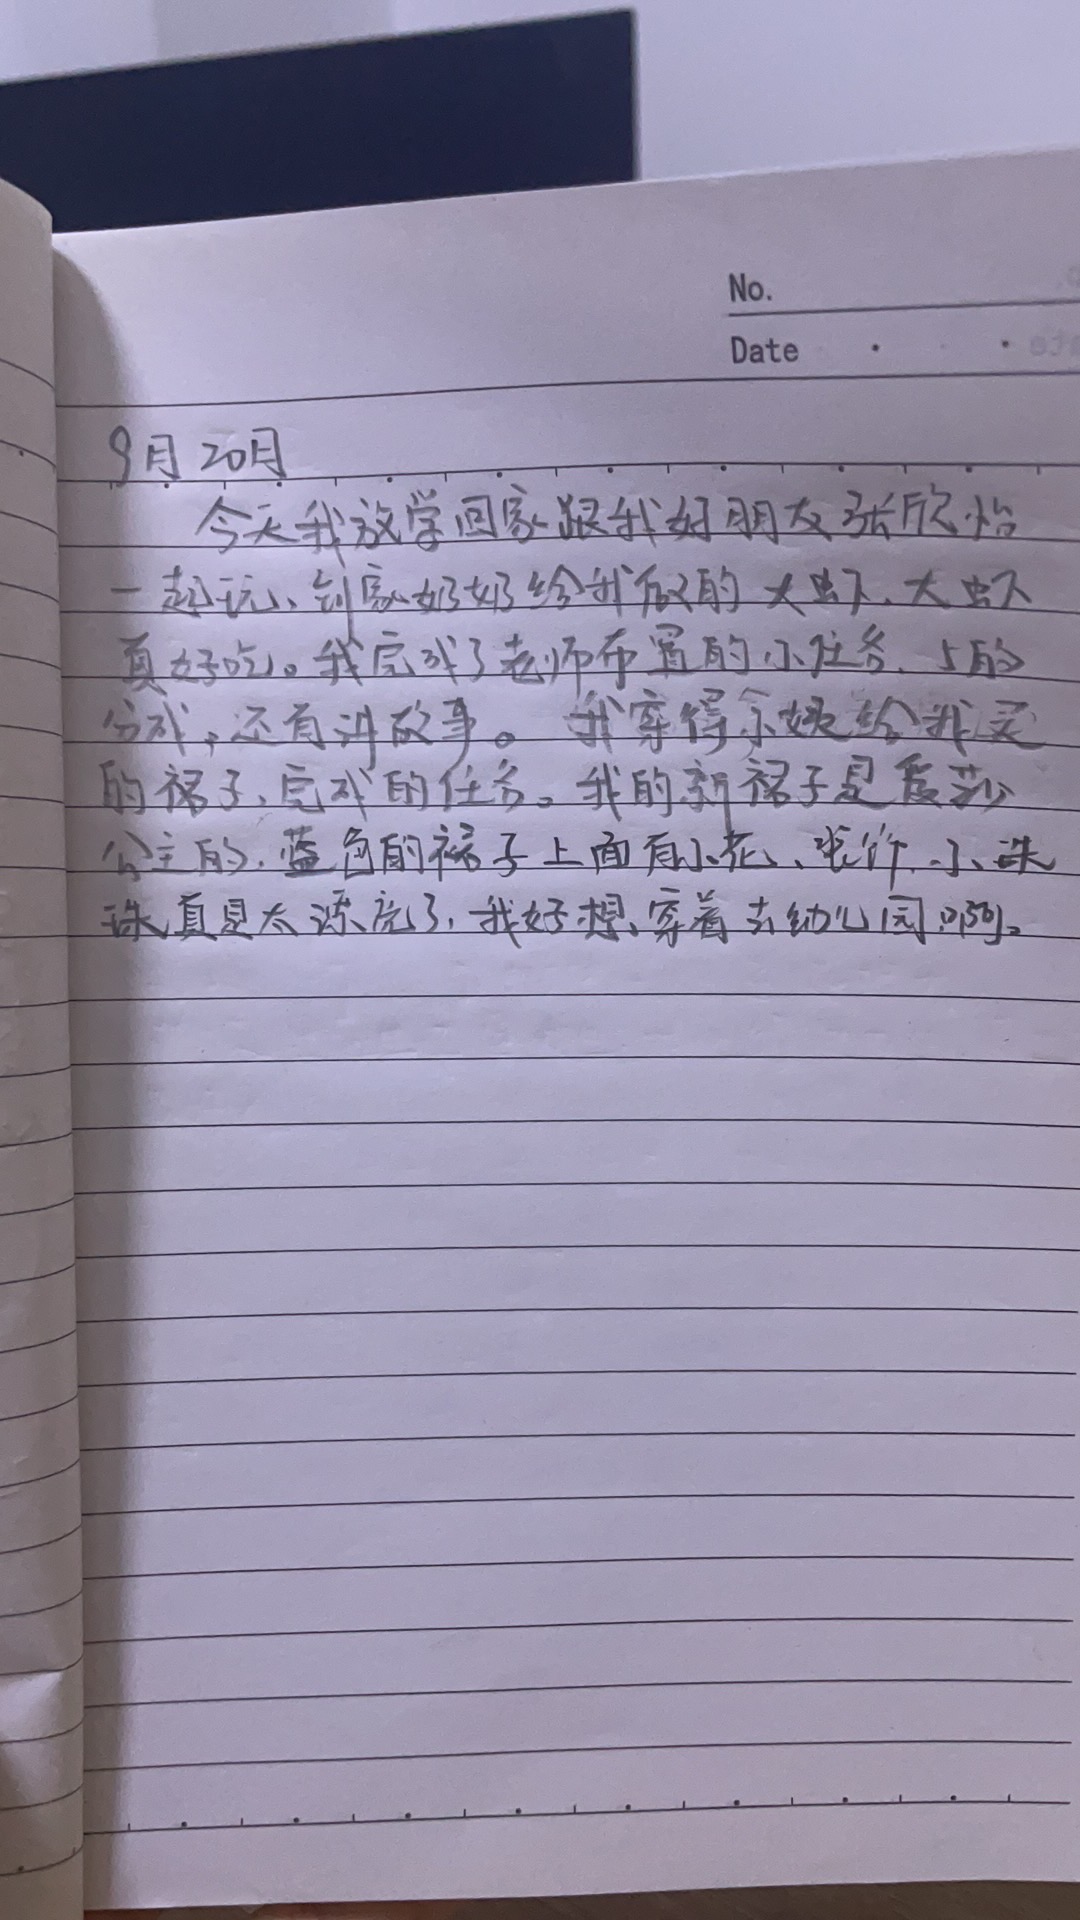 No.
Date
9月20日
今天我放学回家跟我好朋友张欣怡
一起玩、到家奶奶给我做的大虾、大虾
真好吃。我完成了老师布置的小任务、5的
分成,还有讲故事。我穿得小姨给我买
的裙子、完成的任务。我的新裙子是爱莎
公主的、蓝色的裙子上面有小花、小珠
珠真是太漂亮了、我好想、穿着去幼儿园啊。